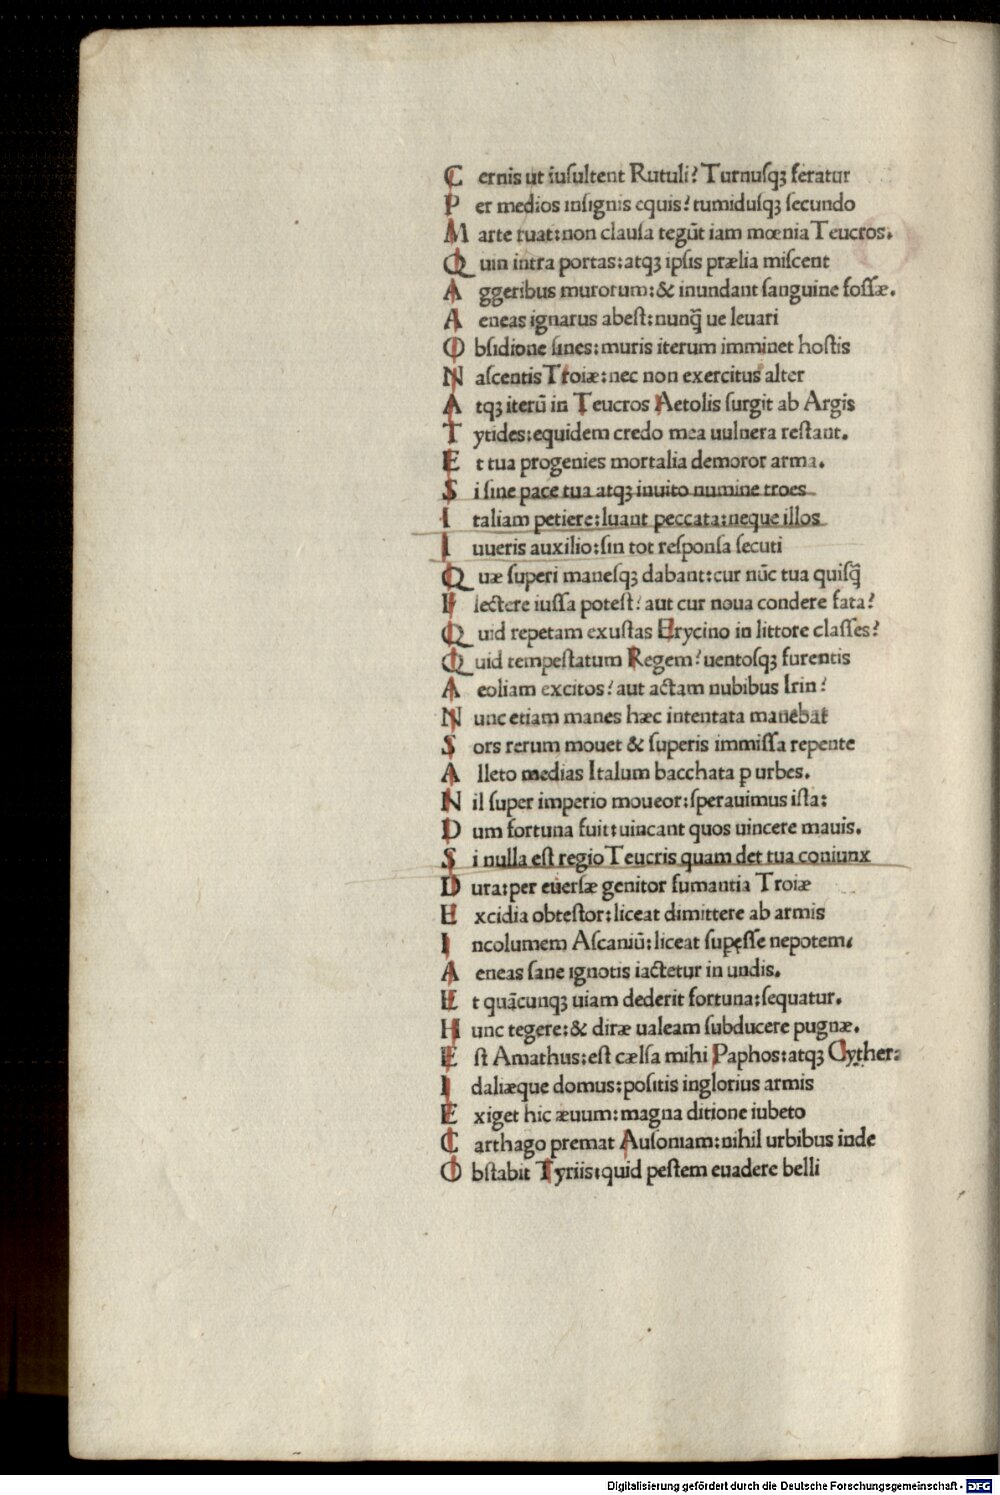 C ernis ut iusultent Rutuli? Turnusqꝫ feratur
P er medios insignis equis? tumidusqꝫ secundo
M arte ruat: non clausa tegūt iam mœnia Teucros.
Q uin intra portas: atqꝫ ipsis prælia miscent
A ggeribus murorum: & inundant sanguine fossæ.
A eneas ignarus abest: nunq̃ ue leuari
O bsidione sines: muris iterum imminet hostis
N ascentis Troiæ: nec non exercitus alter
A tqꝫ iterū in Teucros Aetolis surgit ab Argis
T ytides: equidem credo mea uulnera restant.
E t tua progenies mortalia demoror arma.
S i sine pace tua atqꝫ inuito numine troes
I taliam petiere: luant peccata: neque illos
I uueris auxilio: sin tot responsa secuti
Q uæ superi manesqꝫ dabant: cur nūc tua quisq̃
F lectere iussa potest? aut cur noua condere fata?
Q uid repetam exustas Erycino in littore classes?
Q uid tempestatum Regem? uentosqꝫ furentis
A eoliam excitos? aut actam nubibus Irin?
N unc etiam manes hæc intentata manebat
S ors rerum mouet & superis immissa repente
A lleto medias Italum bacchata ꝑ urbes.
N il super imperio moueor: sperauimus ista:
D um fortuna fuit: uincant quos uincere mauis.
S i nulla est regio Teucris quam det tua coniunx
D ura: per euersæ genitor fumantia Troiæ
E xcidia obtestor: liceat dimittere ab armis
I ncolumem Ascaniū: liceat supesse nepotem.
A eneas sane ignotis iactetur in undis.
E t quācunqꝫ uiam dederit fortuna: sequatur.
H unc tegere: & diræ ualeam subducere pugnæ.
E st Amathus: est cælsa mihi Paphos: atqꝫ Cyther:
I daliæque domus: positis inglorius armis
E xiget hic æuum: magna ditione iubeto
C arthago premat Ausoniam: nihil urbibus inde
O bstabit Tyriis: quid pestem euadere belli
Digitalisierung gefördert durch die Deutsche Forschungsgemeinschaft - DFG